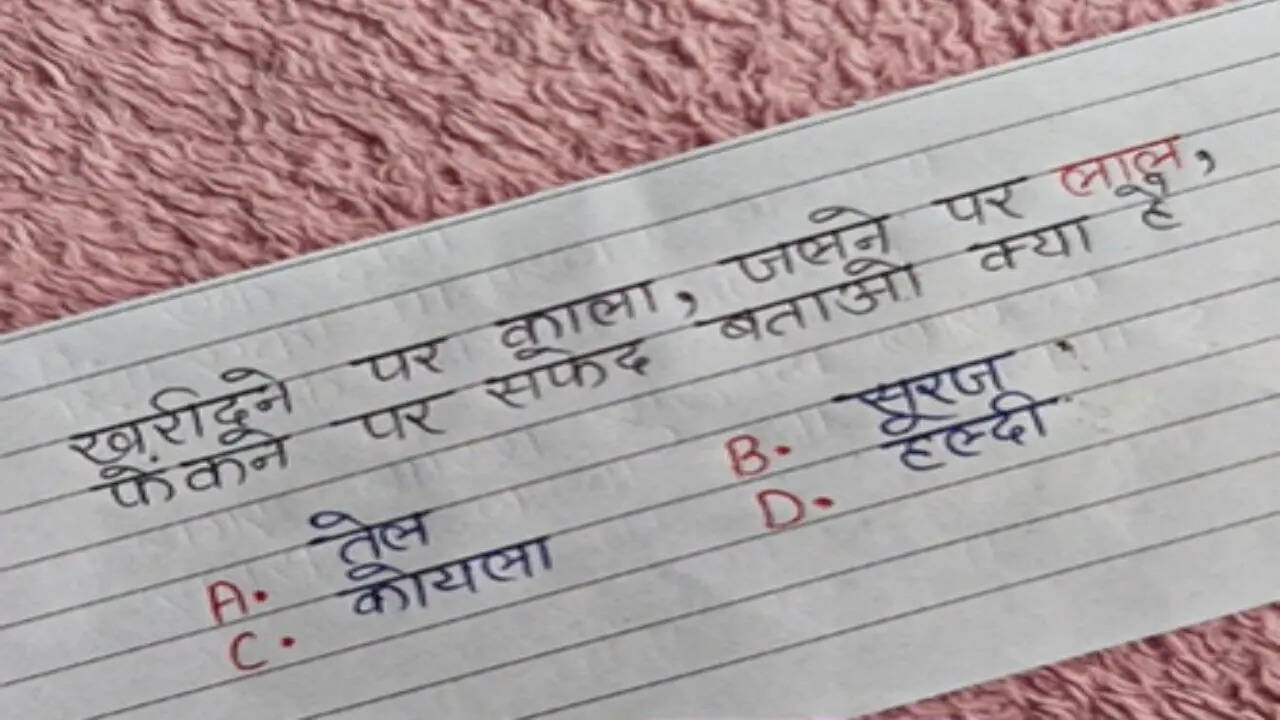 खरीदने पर काला, जलने पर लाल,
फेंकने पर सफेद बताओ क्या है
A. तेल B. सूरज
C. कोयला D. हल्दी